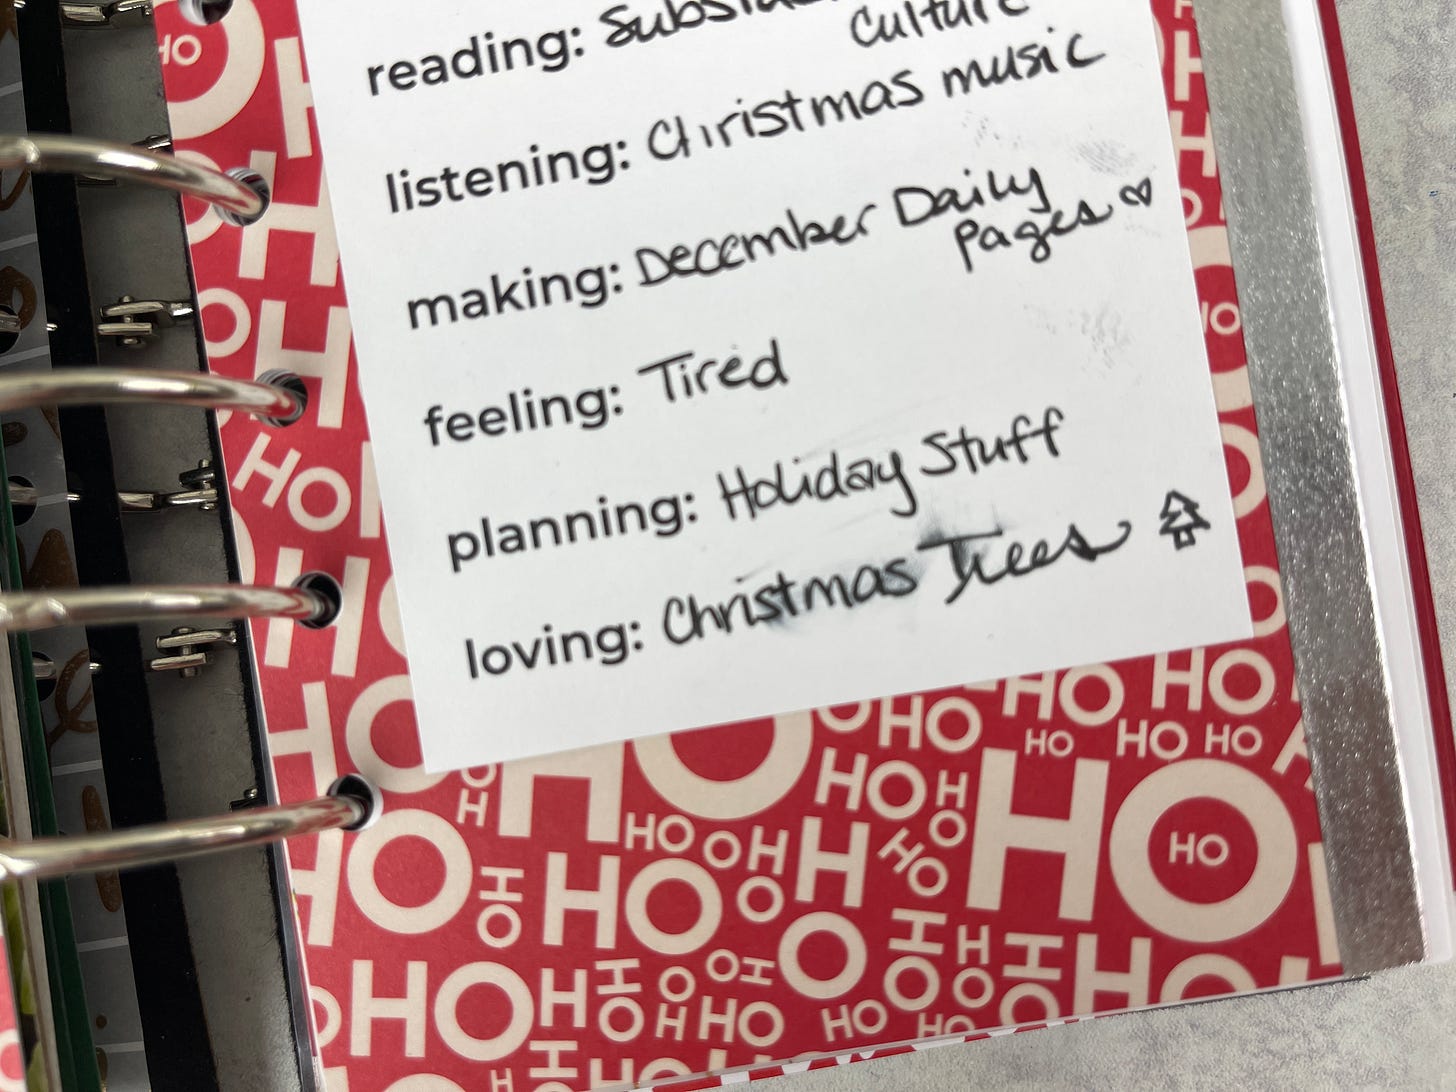 reading:
culture
listening: Christmas music
making: December Daily
pages
feeling: Tired
planning: Holiday Stuff
loving: Christmas Trees
HO HO
HO HO HO HO
HO HO HO HO
HO HO HO HO HO HO
HO HO HO HO HO
HO HO HO HO HO
HO HO HO HO